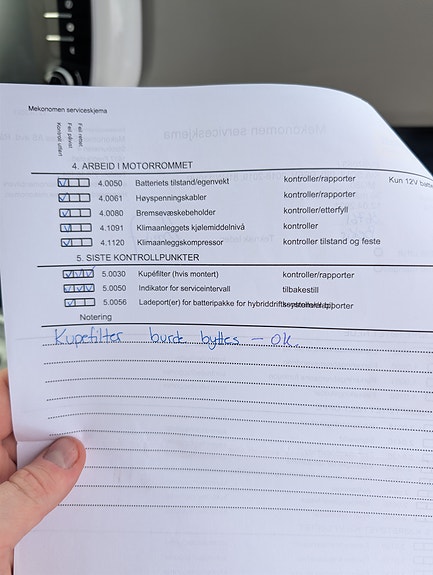 Mekonomen serviceskjema
Kontroll utført
Feil påvist
Feil rettet
4. ARBEID I MOTORROMMET
4.0050 Batteriets tilstand/egenvekt kontroller/rapporter Kun 12V batte
4.0061 Høyspenningskabler kontroller/rapporter
4.0080 Bremsevæskebeholder kontroller/etterfyll
4.1091 Klimaanleggets kjølemiddelnivå kontroller
4.1120 Klimaanleggskompressor kontroller tilstand og feste
5. SISTE KONTROLLPUNKTER
5.0030 Kupéfilter (hvis montert) kontroller/rapporter
5.0050 Indikator for serviceintervall tilbakestill
5.0056 Ladeport(er) for batteripakke for hybriddrift
Notering
Kupefilter burde byttes - OK.